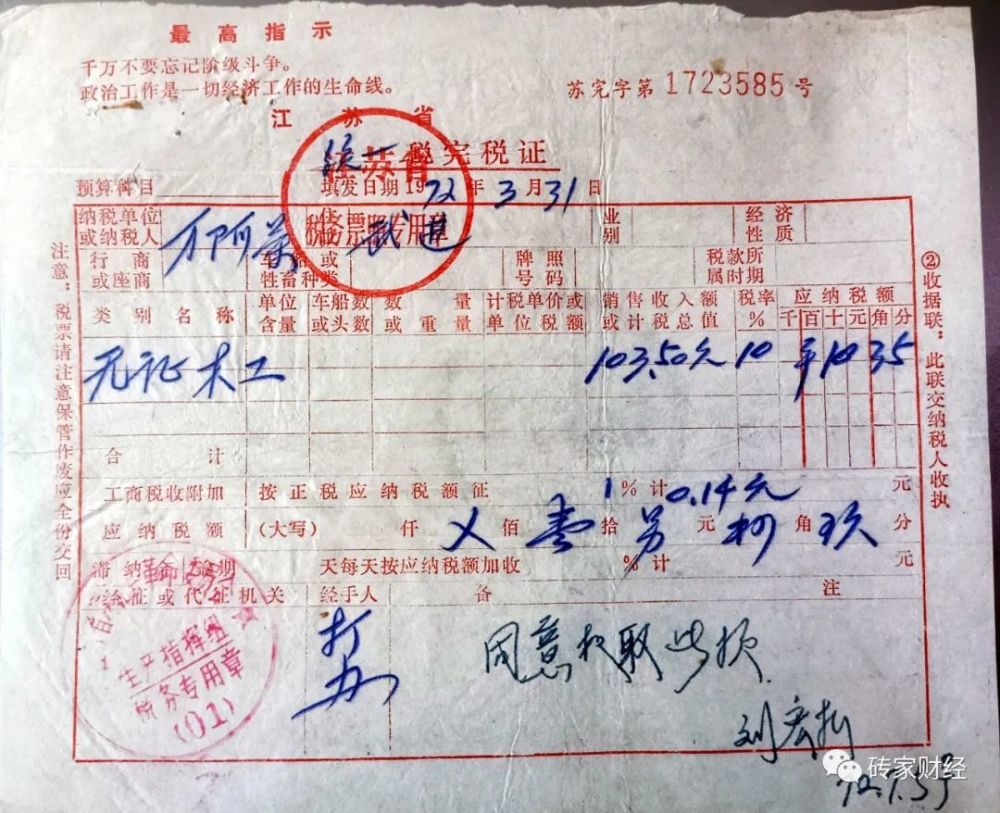 最高指示
千万不要忘记阶级斗争。
政治工作是一切经济工作的生命线。
苏完字第1723585号
江苏省
统一税完税证
江苏省
税务票照专用章
预算科目 填发日期1972年3月31日
纳税单位或纳税人 万阿 住址 武进 业别 经济性质
行商或座商 车船或牲畜种类 牌照号码 税款所属时期
类别名称 单位含量 车船数或头数 数量或重量 计税单价或单位税额 销售收入额或计税总值 税率% 应纳税额 千百十元角分
无证木工 103.50元 10 ¥10 35
合计
工商税收附加 按正税应纳税额征 1%计 0.14元 元
应纳税额 (大写) 仟 佰 壹拾 元 角 玖分
滞纳金 逾期 天每天按应纳税额加收 %计 元
经征或代征机关 经手人 备注
生产指挥组
财务专用章
(01)
同意 取此项
刘宏
注意:税票请注意保管作废应全份交回
②收据联:此联交纳税人收执
砖家财经